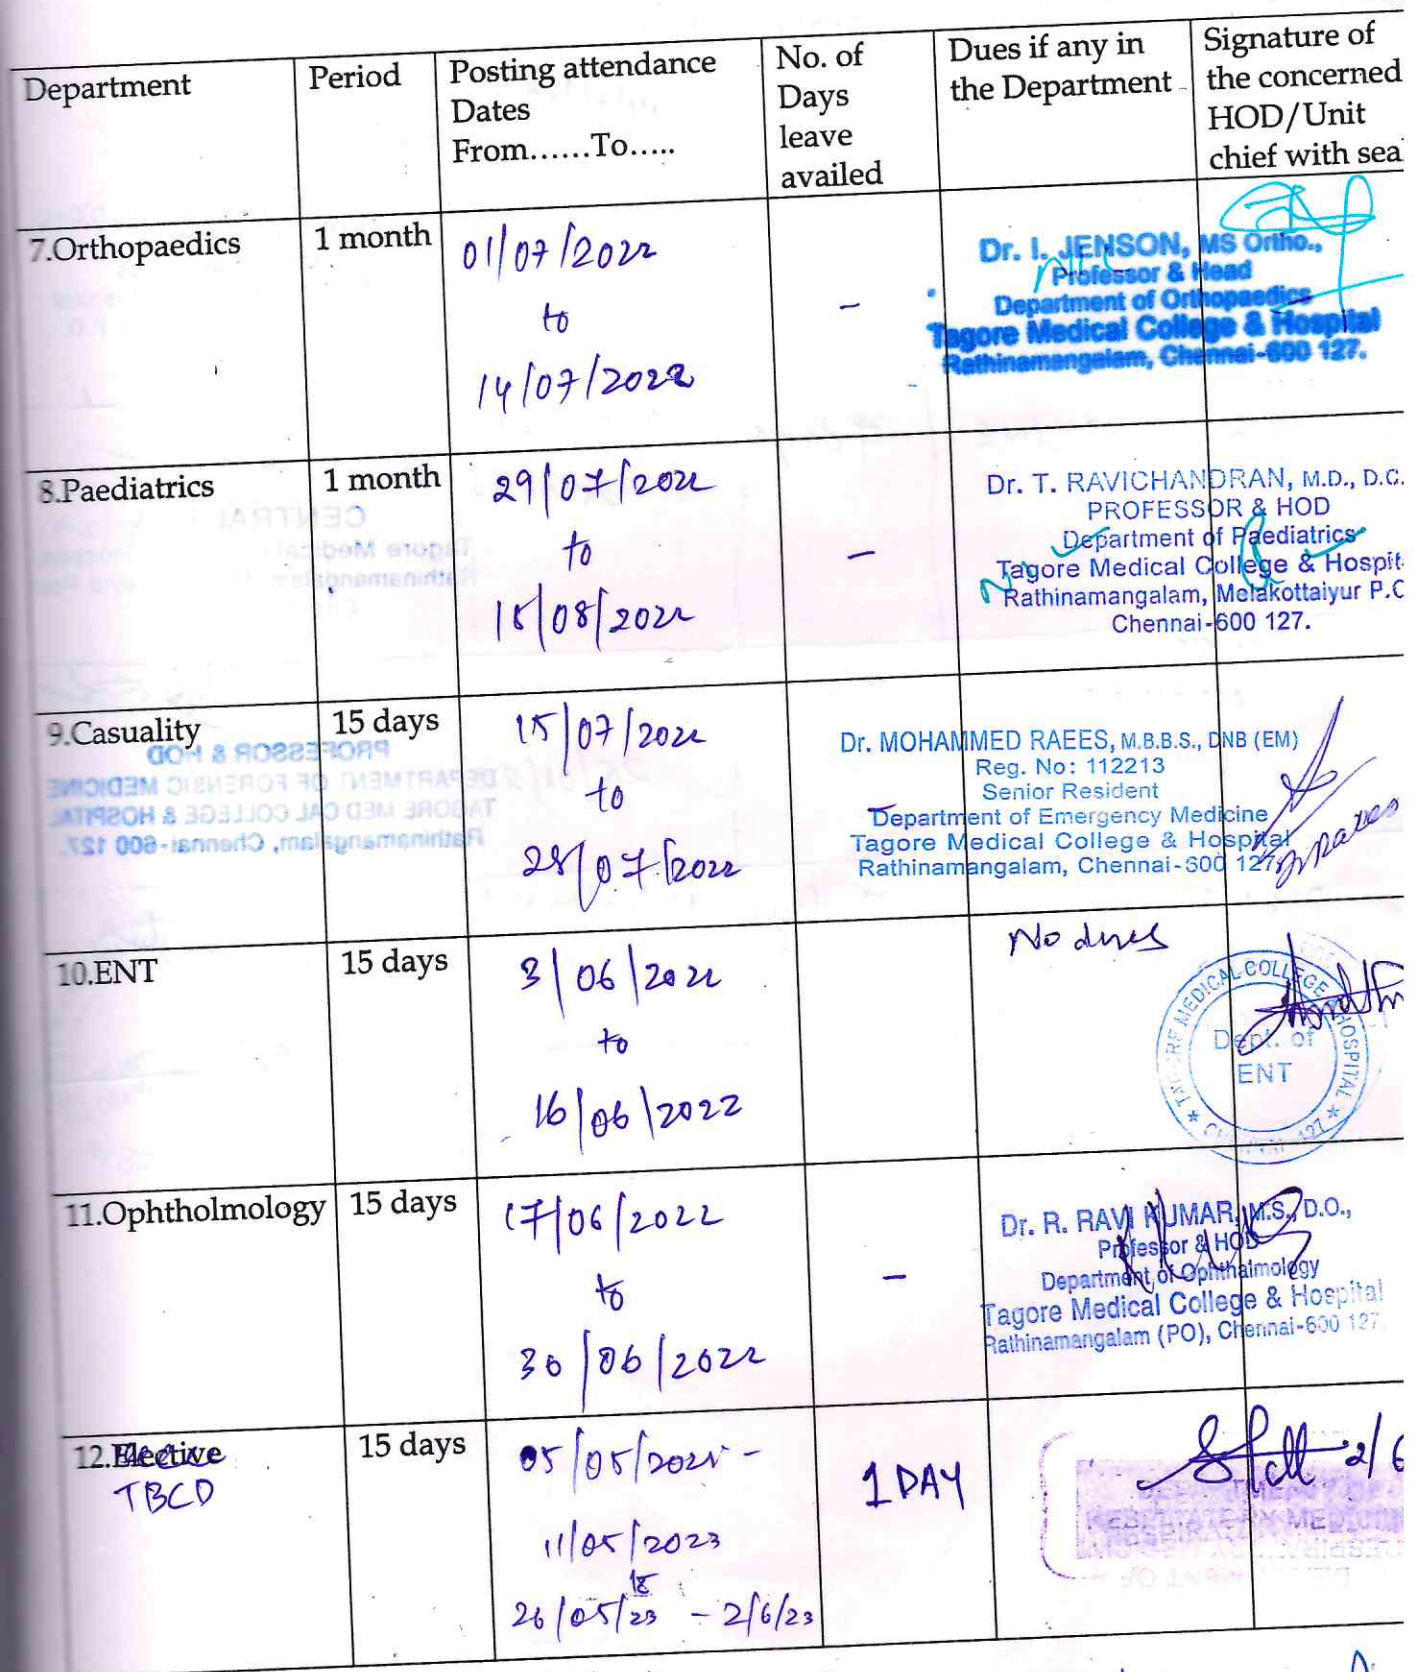 Department
Period
Posting attendance
Dates
From......To.....
No. of
Days
leave
availed
Dues if any in
the Department
Signature of
the concerned
HOD/Unit
chief with sea
7.Orthopaedics
1 month
01/07/2022
to
14/07/2022
–
Nil
Dr. I. JENSON, MS Ortho.,
Professor & Head
Department of Orthopaedics
Tagore Medical College & Hospital
Rathinamangalam, Chennai-600 127.
8.Paediatrics
1 month
29/07/2022
to
18/08/2022
–
Dr. T. RAVICHANDRAN, M.D., D.C.
PROFESSOR & HOD
Department of Paediatrics
Tagore Medical College & Hospit
Rathinamangalam, Melakottaiyur P.O
Chennai-600 127.
9.Casuality
15 days
15/07/2022
to
28/07/2022
Dr. MOHAMMED RAEES, M.B.B.S., DNB (EM)
Reg. No: 112213
Senior Resident
Department of Emergency Medicine
Tagore Medical College & Hospital
Rathinamangalam, Chennai-600 127
10.ENT
15 days
3/06/2022
to
16/06/2022
No dues
TAGORE MEDICAL COLLEGE & HOSPITAL
Dept. of
ENT
★ CHENNAI 127 ★
11.Ophtholmology
15 days
17/06/2022
to
30/06/2022
–
Dr. R. RAVI KUMAR, M.S., D.O.,
Professor & HOD
Department of Ophthalmology
Tagore Medical College & Hospital
Rathinamangalam (PO), Chennai-600 127.
12.Elective
TBCD
15 days
05/05/2023 -
11/05/2023
26/05/23 - 2/6/23
1 DAY
2/6